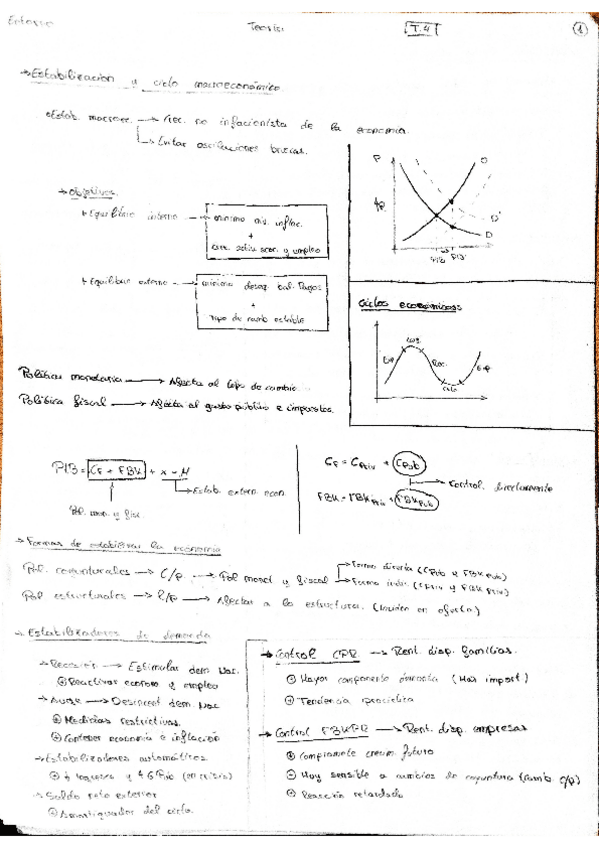 Entorno Teoría: T.4 1
→ Estabilización y ciclo macroeconómico.
Estab. macroec. → Crec. no inflacionista de la economía.
↳ Evitar oscilaciones bruscas.
→ Objetivos.
+ Equilibrio interno → mínimo niv. inflac.
+
crec. activ. econ. y empleo
+ Equilibrio externo → mínimo deseq. bal. Pagos
+
Tipo de cambio estable
P O
ΔP
D'
D
PIB PIB'
Ciclos económicos
Exp. Rec. Exp
Política monetaria → Afecta al tipo de cambio.
Política fiscal → Afecta al gasto público e impuestos.
PIB = CF + FBK + X - M
→ Estab. extern econ.
Pol. mon. y fisc.
CF = CPriv + CPub
→ Control. directamente
FBK = FBKPriv + FBKPub
→ Formas de estabilizar la economía
Pol. coyunturales → C/p. → Pol monet y fiscal → Forma directa (CPub y FBKPub)
→ Forma indir. (CPriv y FBKPriv)
Pol estructurales → L/p → Afectan a la estructura. (Inciden en oferta.)
→ Estabilizadores de demanda
→ Recesión → Estimular dem. Nac.
⊕ Reactivar econom y empleo
→ Auge → Desincent dem. Nac
⊕ Medidas restrictivas.
⊕ Contener economía e inflación
→ Estabilizadores automáticos
→ Saldo neto exterior
⊕ Amortiguador del ciclo.
→ Control CPR → Rent. disp. familias.
⊕ Mayor componente demanda (Más import)
⊖ Tendencia procíclica
→ Control FBKPR → Rent. disp. empresas
⊕ Compromete crecim. futuro
⊖ Muy sensible a cambios de coyuntura (camb. c/p)
⊖ Reacción retardada